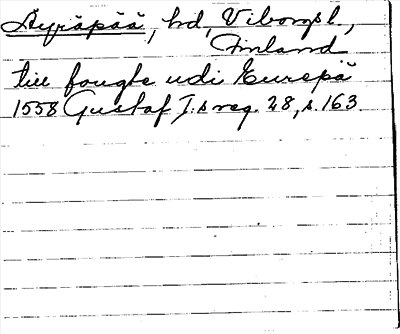 Äyräpää, hd, Viborgsl.,
Finland
till fougte udi Eurepä
1558 Gustaf I:s reg. 28, s. 163